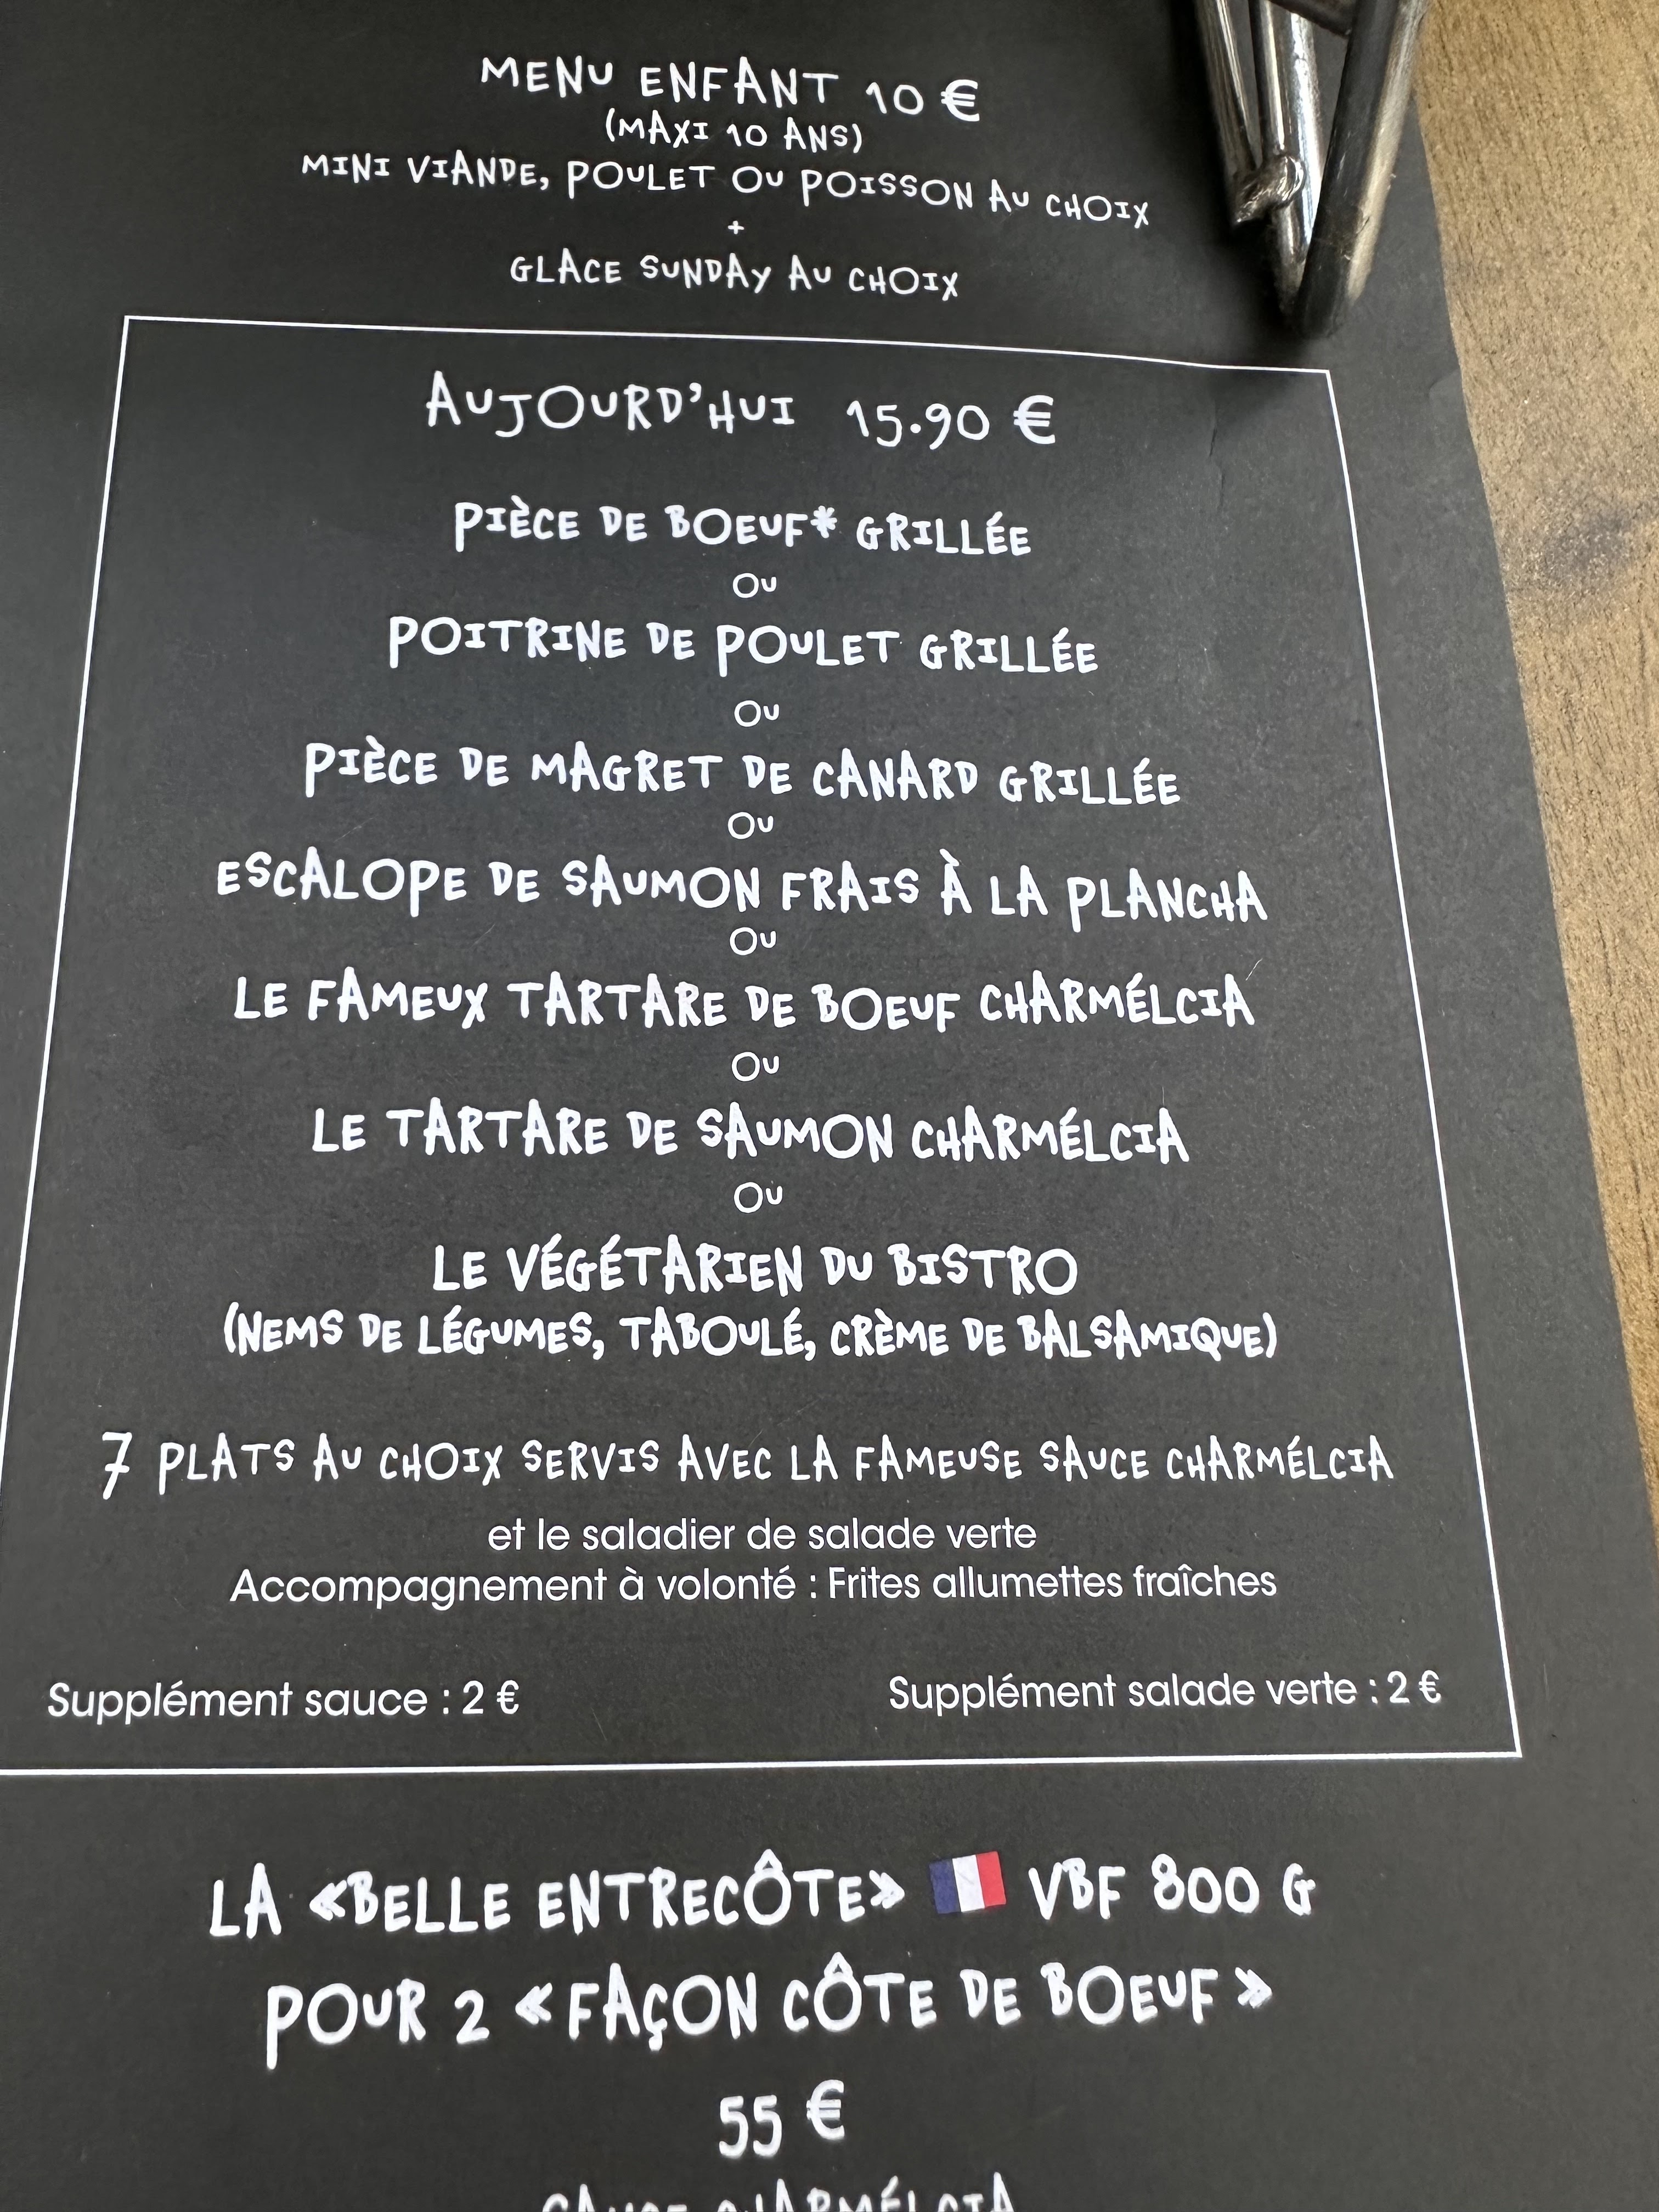 MENU ENFANT 10 €
(MAXI 10 ANS)
MINI VIANDE, POULET OU POISSON AU CHOIX
+
GLACE SUNDAY AU CHOIX
AUJOURD'HUI 15.90 €
PIÈCE DE BOEUF* GRILLÉE
OU
POITRINE DE POULET GRILLÉE
OU
PIÈCE DE MAGRET DE CANARD GRILLÉE
OU
ESCALOPE DE SAUMON FRAIS À LA PLANCHA
OU
LE FAMEUX TARTARE DE BOEUF CHARMÉLCIA
OU
LE TARTARE DE SAUMON CHARMÉLCIA
OU
LE VÉGÉTARIEN DU BISTRO
(NEMS DE LÉGUMES, TABOULÉ, CRÈME DE BALSAMIQUE)
7 PLATS AU CHOIX SERVIS AVEC LA FAMEUSE SAUCE CHARMÉLCIA
et le saladier de salade verte
Accompagnement à volonté : Frites allumettes fraîches
Supplément sauce : 2 €
Supplément salade verte : 2 €
LA «BELLE ENTRECÔTE» VBF 800 G
POUR 2 « FAÇON CÔTE DE BOEUF »
55 €
SAUCE CHARMÉLCIA